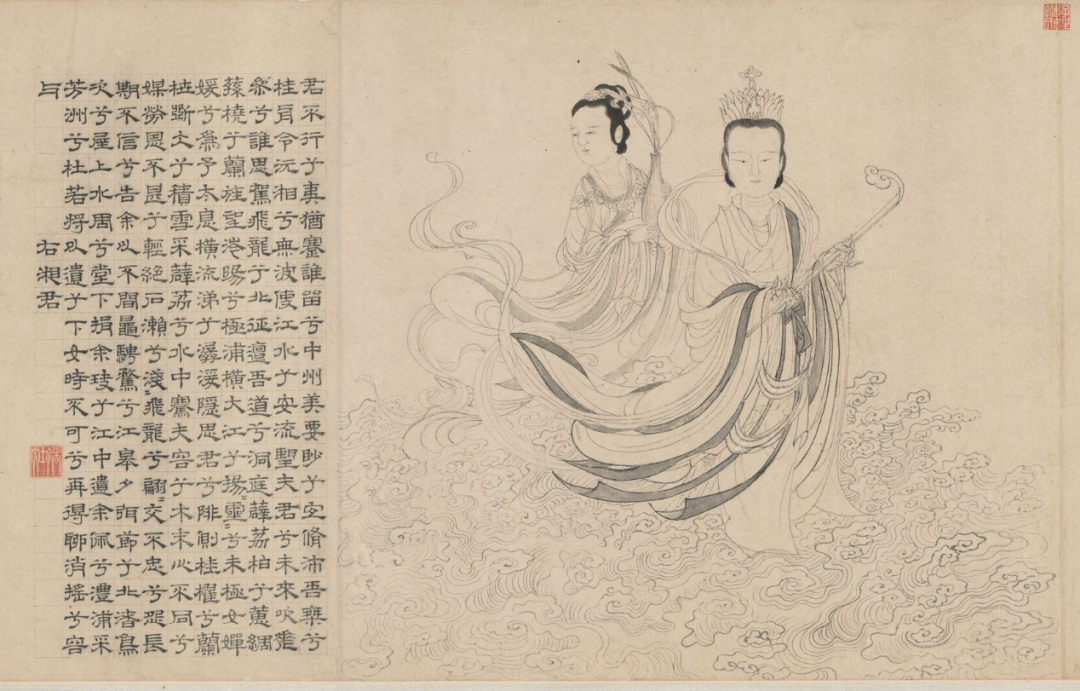 君不行兮夷猶蹇誰留兮中州美要眇兮宜脩沛吾乗兮
桂舟令沅湘兮無波使江水兮安流望夫君兮未來吹
兮誰思駕飛龍兮北征邅吾道兮洞庭薜荔柏兮蕙綢
蓀橈兮蘭旌望涔陽兮極浦橫大江兮揚靈〻兮未極女嬋
媛兮爲予太息橫流涕兮潺湲隱思君兮陫側桂櫂兮蘭
枻斲冰兮積雪采薜荔兮水中搴夫容兮木末心不同兮
媒勞恩不甚兮輕絕石瀨兮淺〻飛龍兮翩〻交不忠兮怨長
期不信兮告余以不閒鼂騁騖兮江皋夕弭節兮北渚鳥
次兮屋上水周兮堂下捐余玦兮江中遺余佩兮澧浦采
芳洲兮杜若將以遺兮下女時不可兮再得聊消搖兮容
与
右湘君